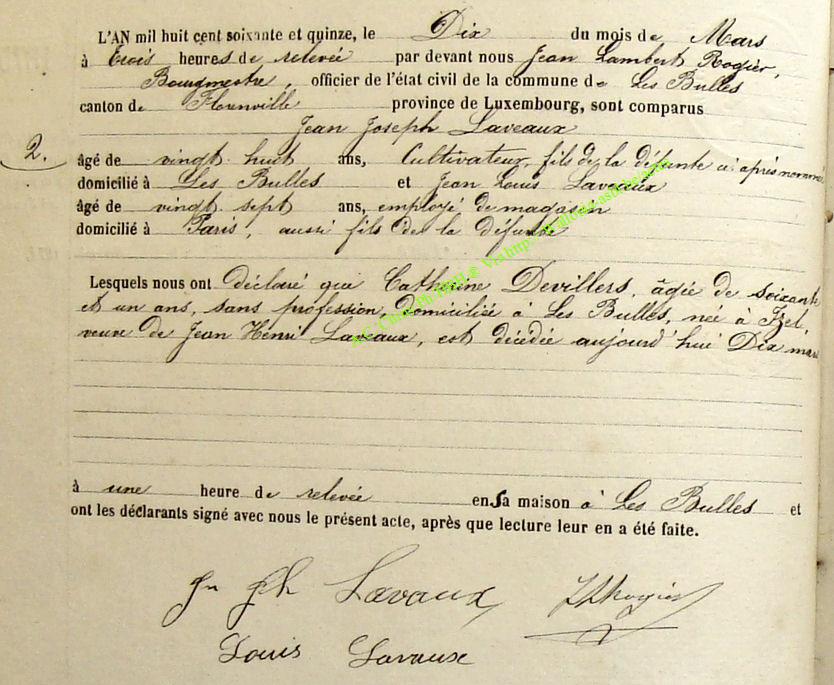 L'AN mil huit cent soixante et quinze, le Dix du mois de Mars
à trois heures de relevée par devant nous Jean Lambert Rogier,
Bourgmestre, officier de l'état civil de la commune de Les Bulles
canton de Florenville province de Luxembourg, sont comparus
Jean Joseph Laveaux
2.
âgé de vingt huit ans, Cultivateur, fils de la défunte ci après nommée
domicilié à Les Bulles et Jean Louis Laveaux
âgé de vingt sept ans, employé de magasin
domicilié à Paris, aussi fils de la défunte
Lesquels nous ont déclaré que Catherine Devillers, âgée de soixante
et un ans, sans profession, domiciliée à Les Bulles, née à Izel,
veuve de Jean Henri Laveaux, est décédée aujourd'hui Dix mars
à une heure de relevée en sa maison à Les Bulles et
ont les déclarants signé avec nous le présent acte, après que lecture leur en a été faite.
Jn Jh Lavaux JLRogier
Louis Lavaux